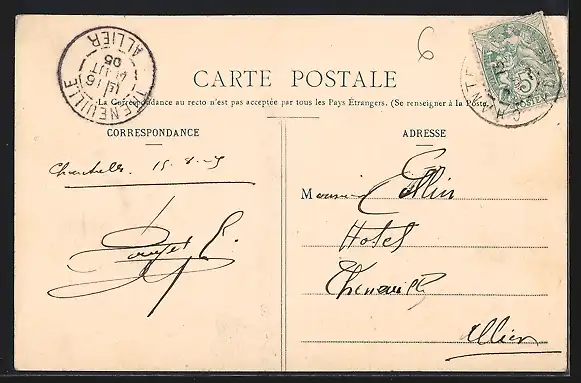 6
THENEUILLE
16
AOUT
05
ALLIER
5
POSTES
CARTE POSTALE
La Correspondance au recto n'est pas acceptée par tous les Pays Étrangers. (Se renseigner à la Poste
CORRESPONDANCE
ADRESSE
Chantelle. 15-8-5
Monsieur
Hotel
Theneuille
Allier